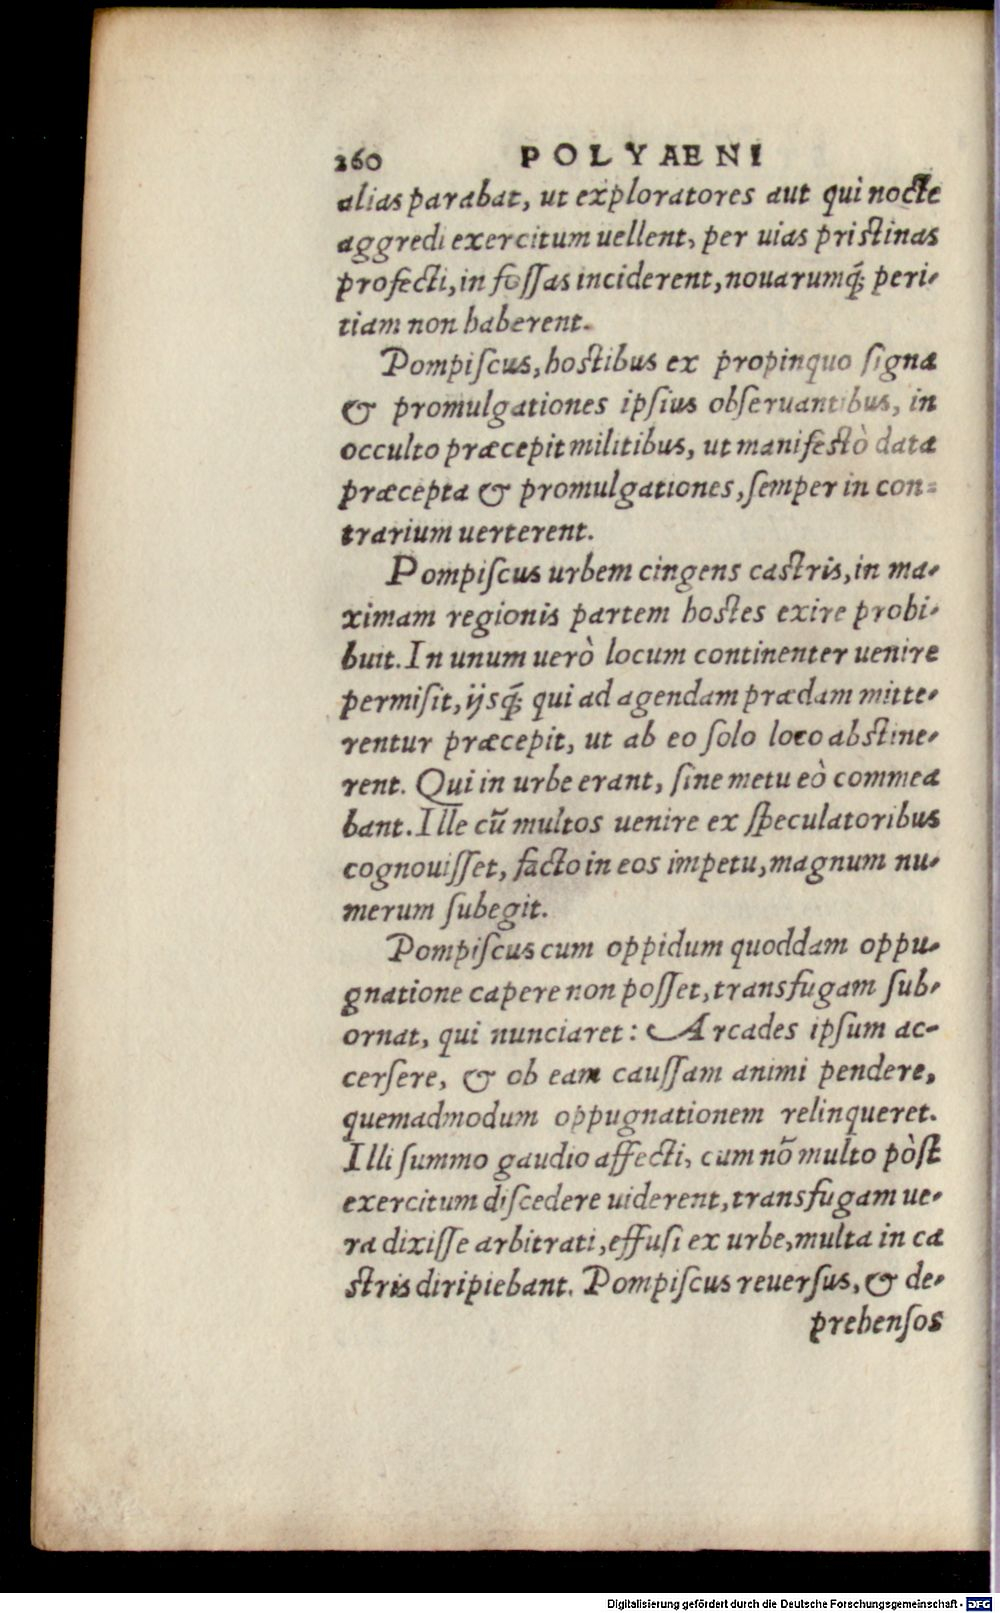 260 POLYAENI
alias parabat, ut exploratores aut qui nocte
aggredi exercitum uellent, per uias pristinas
profecti, in fossas inciderent, nouarumq́; peri-
tiam non haberent.
Pompiscus, hostibus ex propinquo signa
& promulgationes ipsius obseruantibus, in
occulto præcepit militibus, ut manifestò data
præcepta & promulgationes, semper in con-
trarium uerterent.
Pompiscus urbem cingens castris, in ma-
ximam regionis partem hostes exire prohi-
buit. In unum uerò locum continenter uenire
permisit, ijsq́; qui ad agendam prædam mitte-
rentur præcepit, ut ab eo solo loco abstine-
rent. Qui in urbe erant, sine metu eò commea
bant. Ille cū multos uenire ex speculatoribus
cognouisset, facto in eos impetu, magnum nu-
merum subegit.
Pompiscus cum oppidum quoddam oppu-
gnatione capere non posset, transfugam sub-
ornat, qui nunciaret: Arcades ipsum ac-
cersere, & ob eam caussam animi pendere,
quemadmodum oppugnationem relinqueret.
Illi summo gaudio affecti, cum nō multo pòst
exercitum discedere uiderent, transfugam ue-
ra dixisse arbitrati, effusi ex urbe, multa in ca
stris diripiebant. Pompiscus reuersus, & de-
prehensos
Digitalisierung gefördert durch die Deutsche Forschungsgemeinschaft - DFG